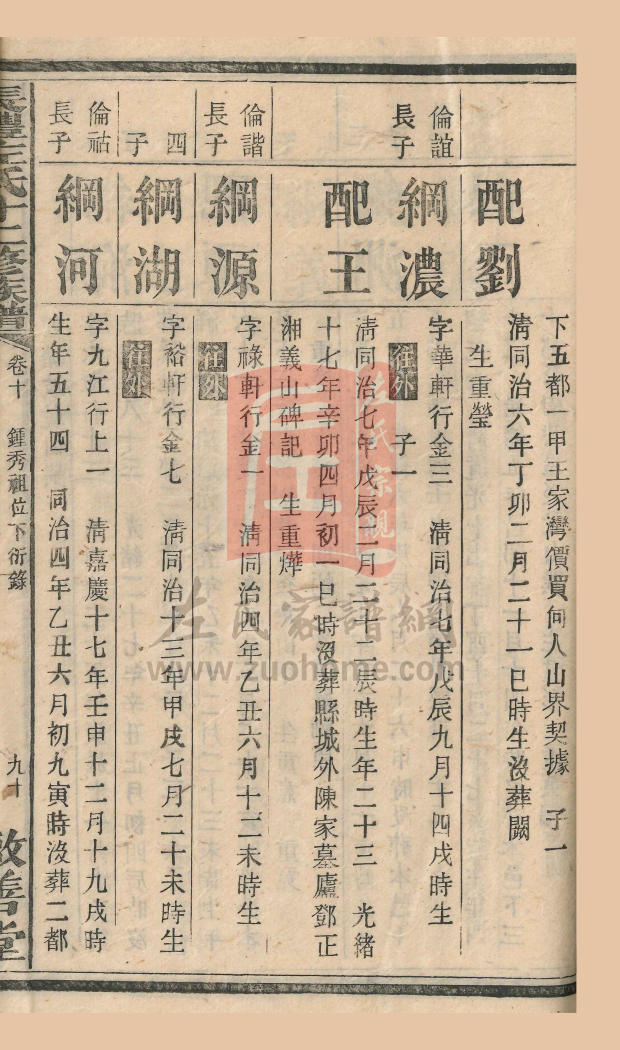 下五都一甲王家灣價買何人山界契據 子一
配劉
清同治六年丁卯二月二十一巳時生沒葬闕
生重瑩
倫誼長子
綱濃
字華軒行金三 清同治七年戊辰九月十四戌時生
往外 子一
配王
清同治七年戊辰二月二十二辰時生年二十三 光緒
十七年辛卯四月初一巳時沒葬縣城外陳家墓廬鄧正
湘義山碑記 生重燁
倫諧長子
綱源
字祿軒行金一 清同治四年乙丑六月十二未時生
往外
四子
綱湖
字裕軒行金七 清同治十三年甲戌七月二十未時生
往外
倫祜長子
綱河
字九江行上一 清嘉慶十七年壬申十二月十九戌時
生年五十四 同治四年乙丑六月初九寅時沒葬二都
長澧左氏十二修族譜
卷十 鍾秀祖位下衍錄
九十
敦善堂
左氏宗親
左氏家譜網
www.zuohome.com